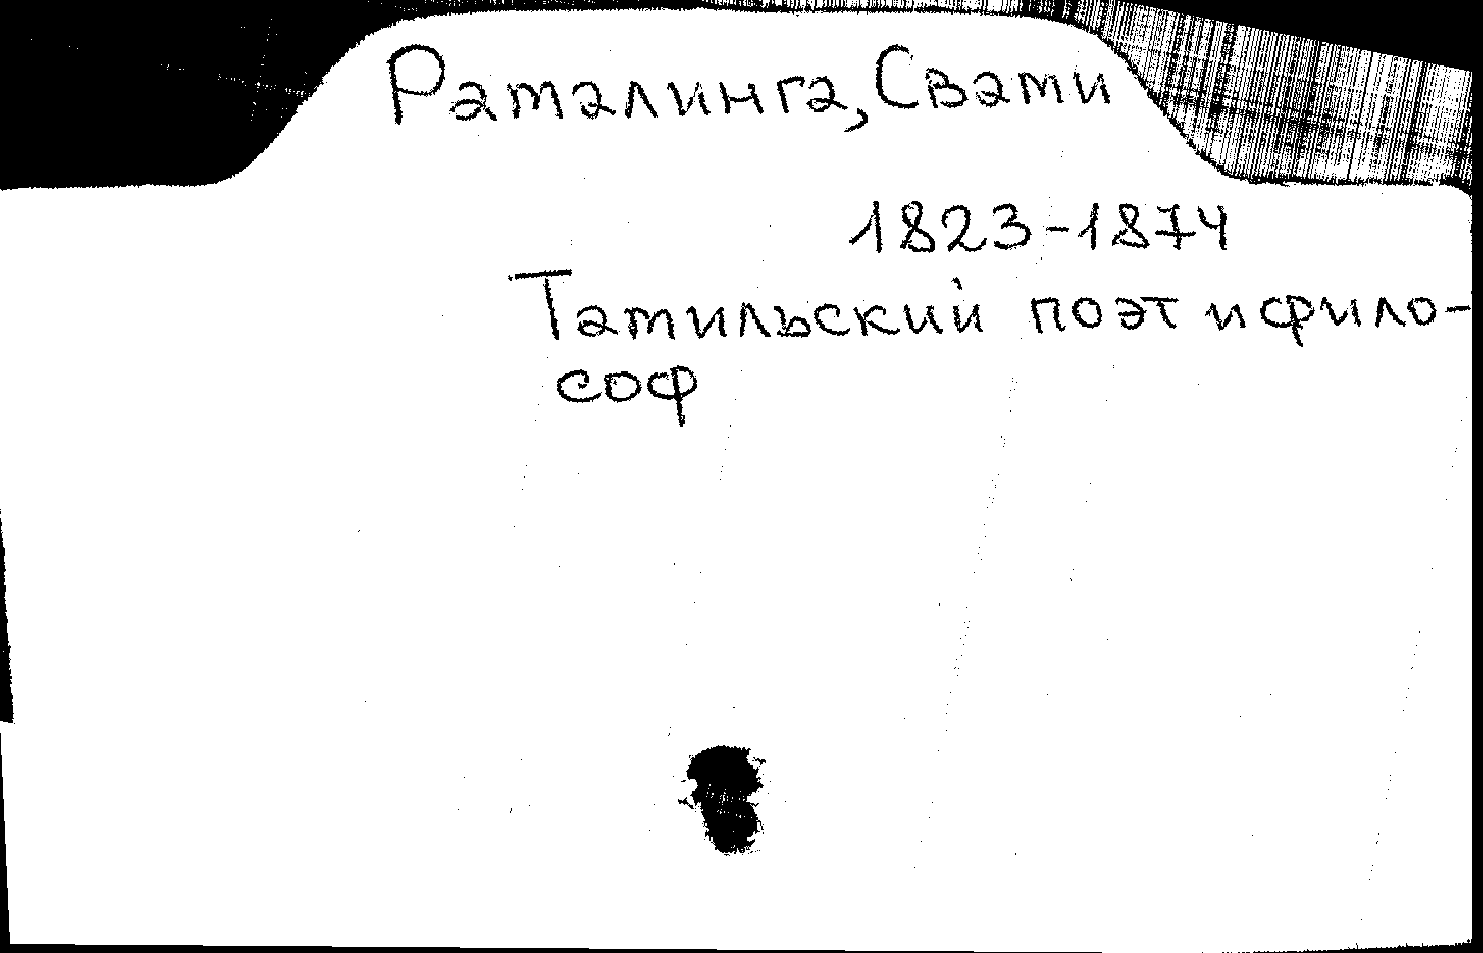 Рамалинга, Свами
1823-1874
Тамильский поэт и фило-
соф